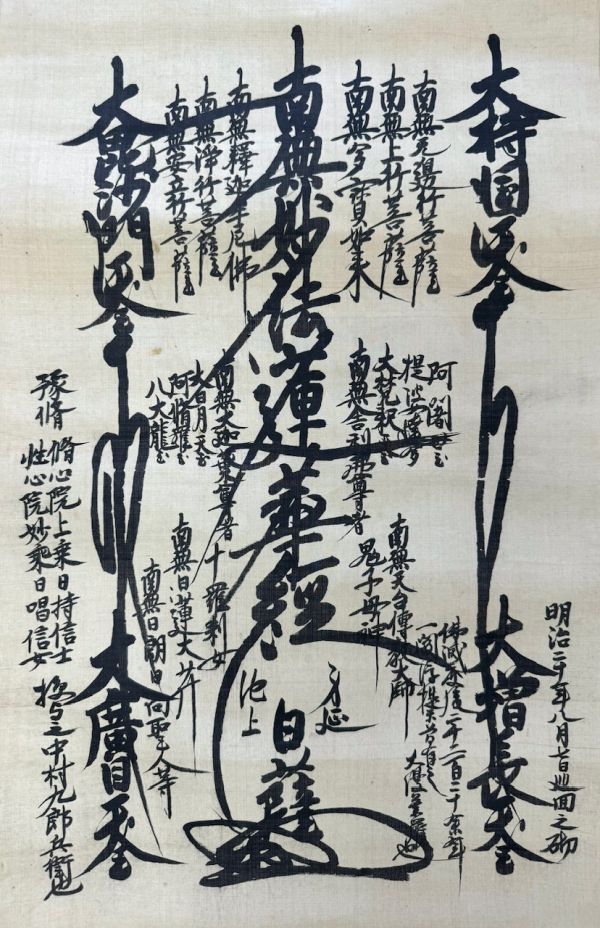 明治二十年八月吉日巡回之砌
大持国天王
大増長天王
南無無邊行菩薩
南無上行菩薩
南無多寶如来
阿闍世王
提婆達多
大梵釈天王
南無舎利弗尊者
南無天台傳教大師
鬼子母神
佛滅度後二千二百二十余年
一閻浮提
大曼荼羅也
南無妙法蓮華経
身延
池上
日薩
南無釋迦牟尼佛
南無浄行菩薩
南無安立行菩薩
南無大迦葉尊者
大日月天王
阿脩羅王
八大龍王
十羅刹女
南無日蓮大菩薩
南無日朗日向聖人等
大毘沙門天王
大廣目天王
授与之中村九郎兵衛也
豫脩
脩心院上乗日持信士
性心院妙乗日唱信女